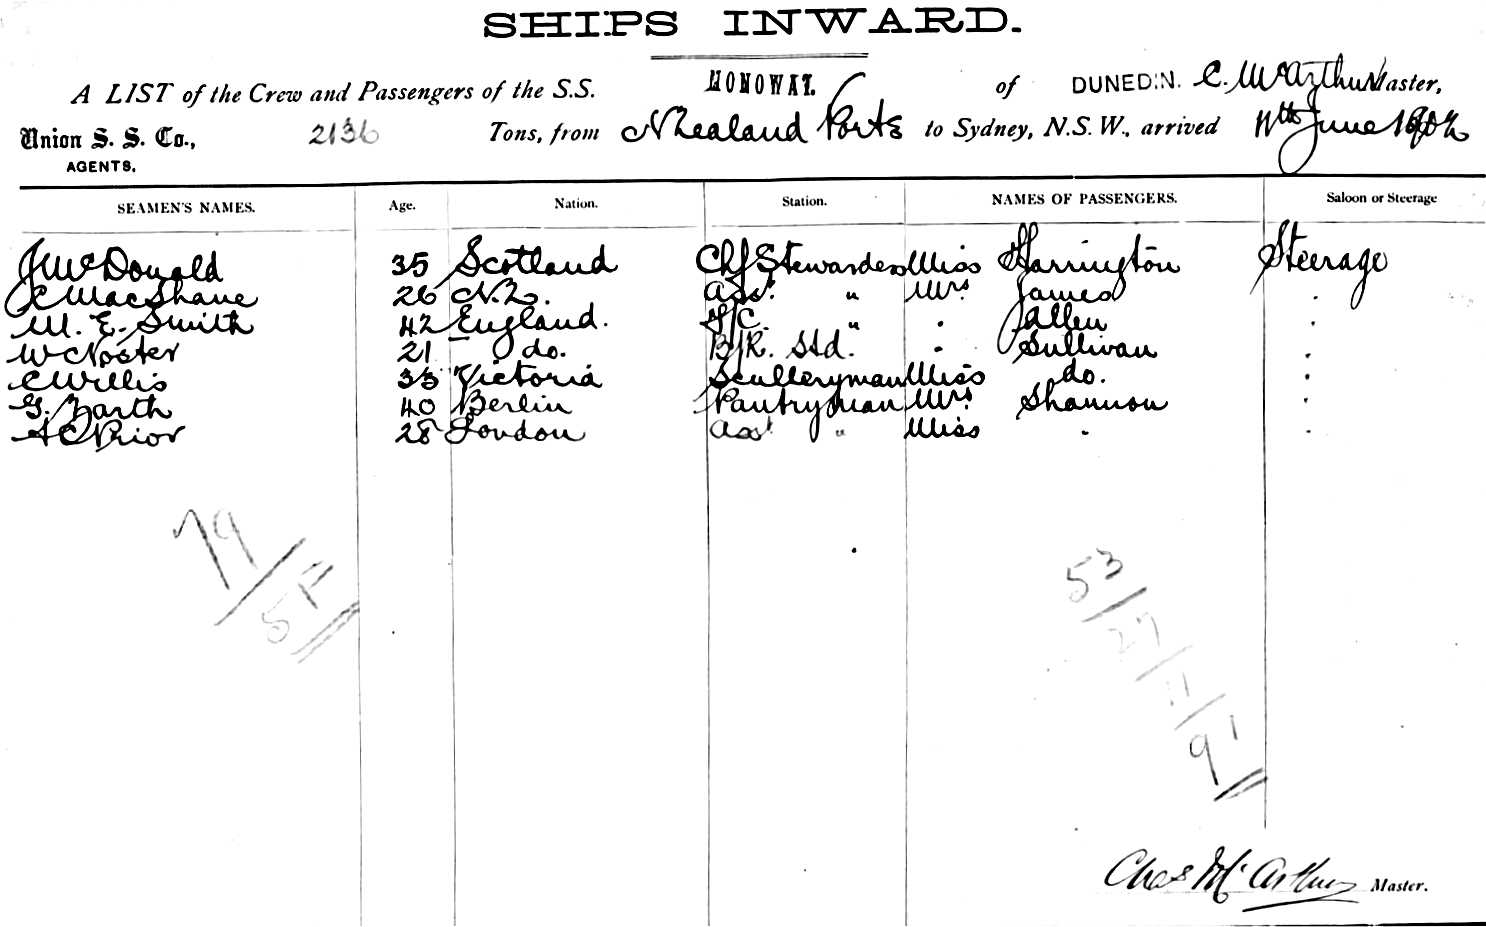 SHIPS INWARD.
A LIST of the Crew and Passengers of the S.S. MONOWAI. of DUNEDIN. C. McArthur Master,
Union S. S. Co., 2136 Tons, from N Zealand Ports to Sydney, N.S.W., arrived 11th June 1902
AGENTS.
SEAMEN'S NAMES. Age. Nation. Station. NAMES OF PASSENGERS. Saloon or Steerage
J McDonald 35 Scotland Chf Stewardess Miss Harrington Steerage
C MacShane 26 N.Z. Asst. " Mrs James "
M. E. Smith 42 England. F/C. " " Allen "
W C Noster 21 do. B/R. Std. " Sullivan "
C Willis 33 Victoria Sculleryman Miss do. "
G. Barth 40 Berlin Pantryman Mrs Shannon "
A C Prior 28 London Asst " Miss " "
79
51
53
27
11
91
Chas McArthur Master.